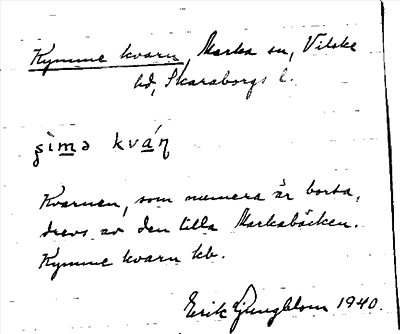 Kymme kvarn, Marka sn, Vilske
hd, Skaraborgs l.
ʂìmə kván̩
Kvarnen, som numera är borta,
drevs av den lilla Markabäcken.
Kymme kvarn kb.
Erik Ljungblom 1940.